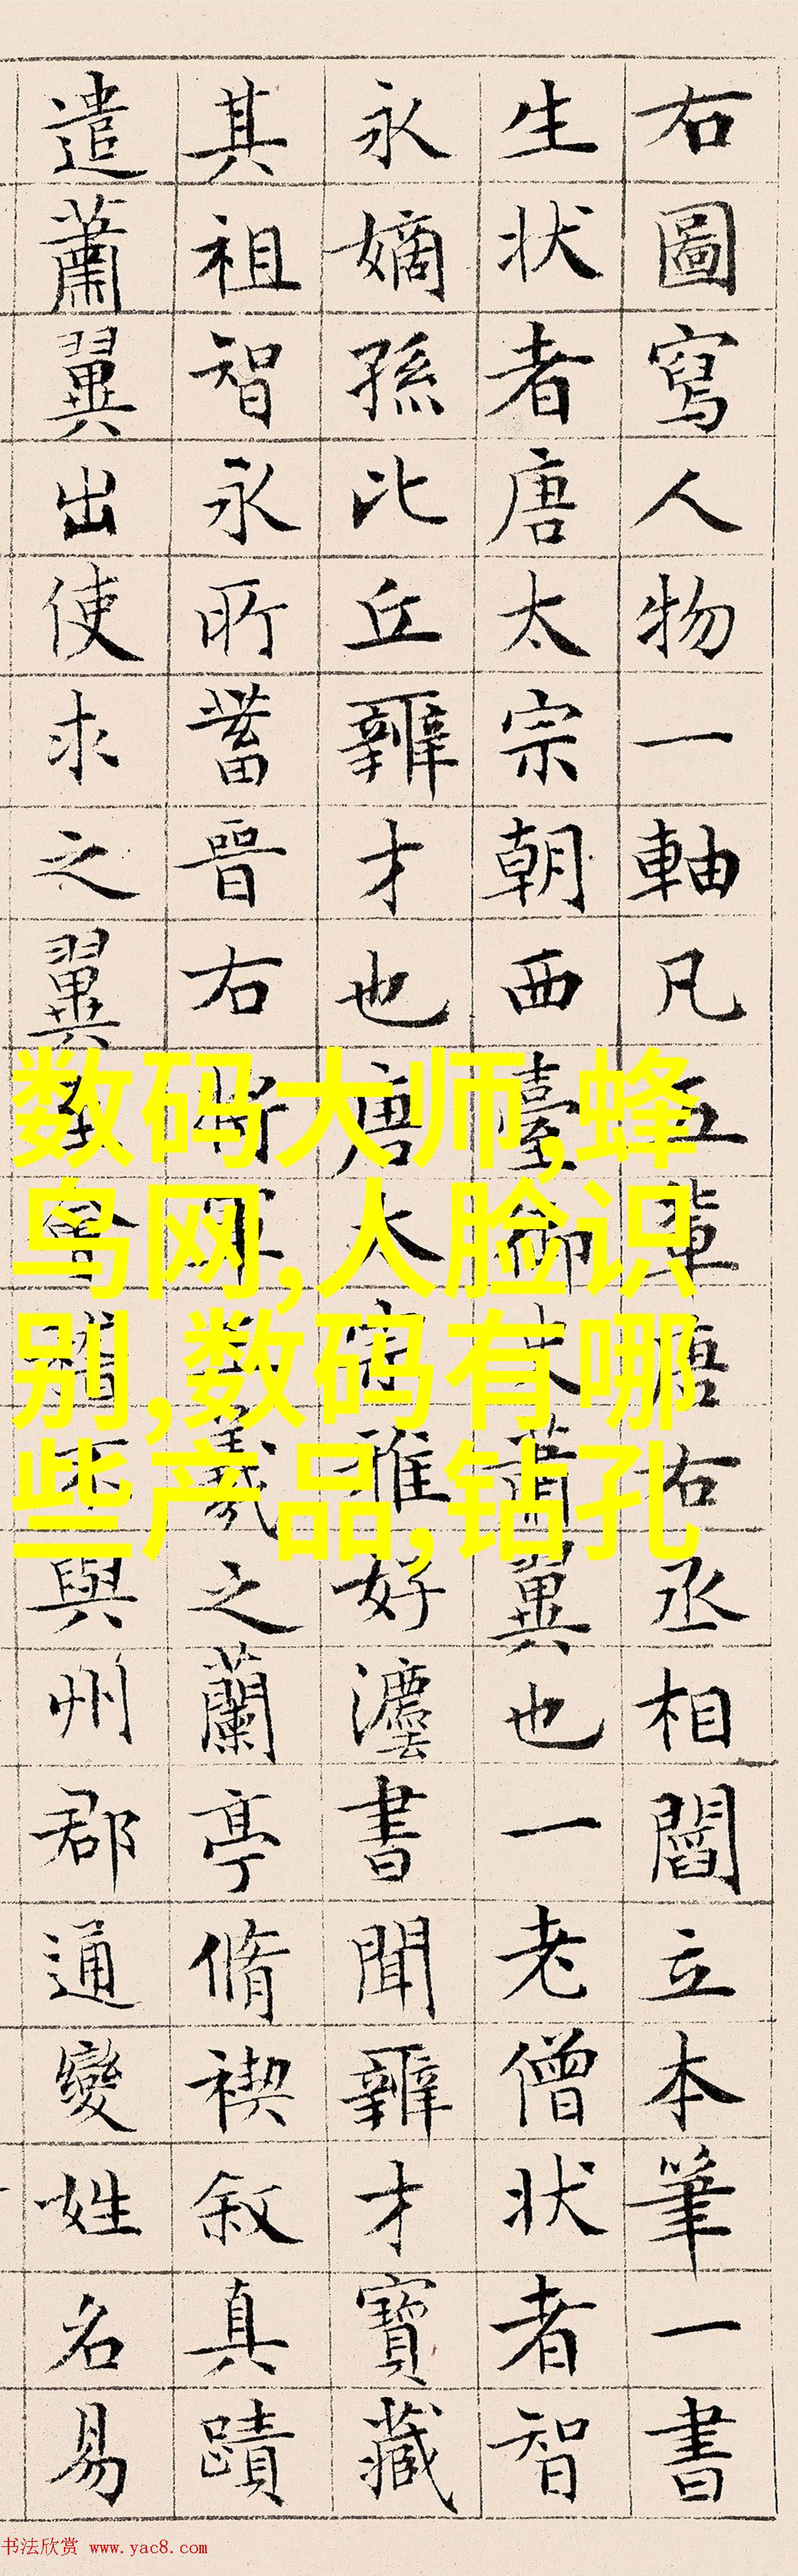 右圖寫人物一軸凡五輩唐右丞相閻立本筆一書
生状者唐太宗朝西臺御史蕭翼也一老僧状者智
永嫡孫比丘辯才也唐太宗雅好灋書聞辯才寶藏
其祖智永所蓄晉右將軍王羲之蘭亭脩禊叙真蹟
遣蕭翼出使求之翼至會稽不與州郡通變姓名易
数码大师,蜂
鸟网,人脸识
别,数码有哪
些产品,钻孔
书法欣赏 www.yac8.com